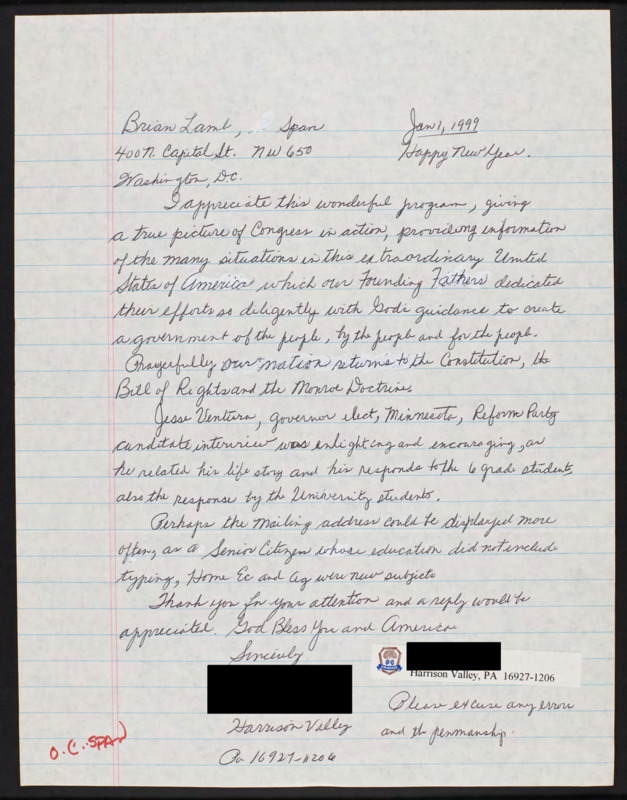 Brian Lamb, Span
Jan 1, 1999
400 N. Capital St. NW 650
Happy New Year.
Washington, D.C.
I appreciate this wonderful program, giving
a true picture of Congress in action, providing information
of the many situations in this extraordinary United
States of America which our Founding Fathers dedicated
their efforts so diligently with God's guidance to create
a government of the people, by the people and for the people.
Prayerfully our nation returns to the Constitution, the
Bill of Rights and the Monroe Doctrine.
Jesse Ventura, governor elect, Minnesota, Reform Party
canditate, interview was enlighting and encouraging, as
he related his life story and his responds to the 6 grade students,
also the response by the University students.
Perhaps the mailing address could be displayed more
often, as a Senior Citizen whose education did not include
typing, Home Ec and Ag were new subjects
Thank you for your attention and a reply would be
appreciated. God Bless You and America
Sincerely
Harrison Valley, PA 16927-1206
Harrison Valley
Pa 16927-1206
Please excuse any errors
and the penmanship.
O.C-SPAN